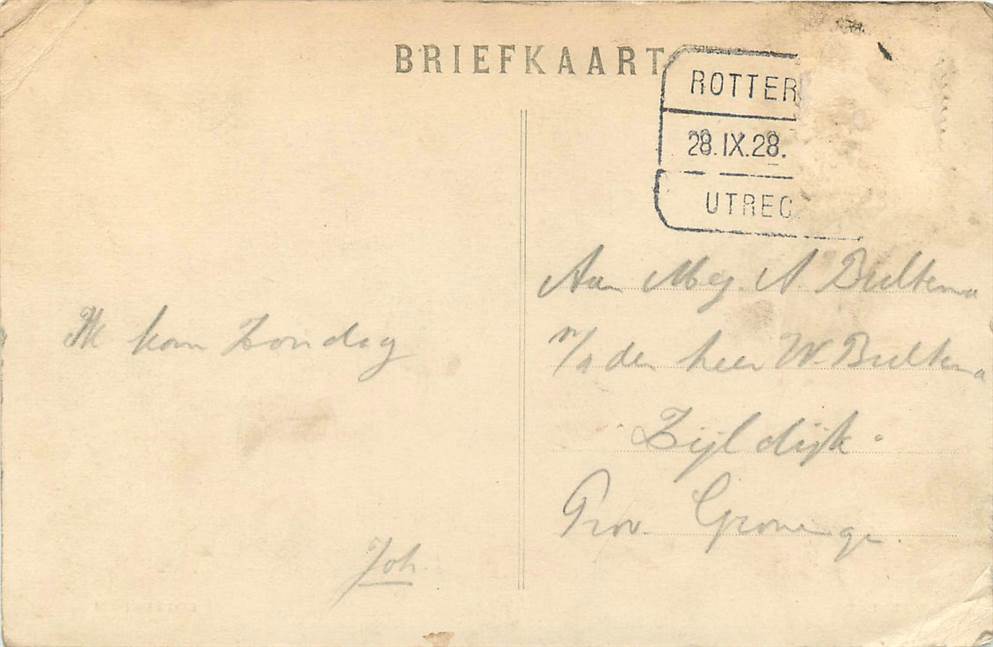 BRIEFKAART
ROTTER
28.IX.28.
UTREC
Aan Mej. A. Bultema
p/a den heer W. Bultema
Zijldijk.
Prov. Groninge.
Ik kom Zondag
Joh.